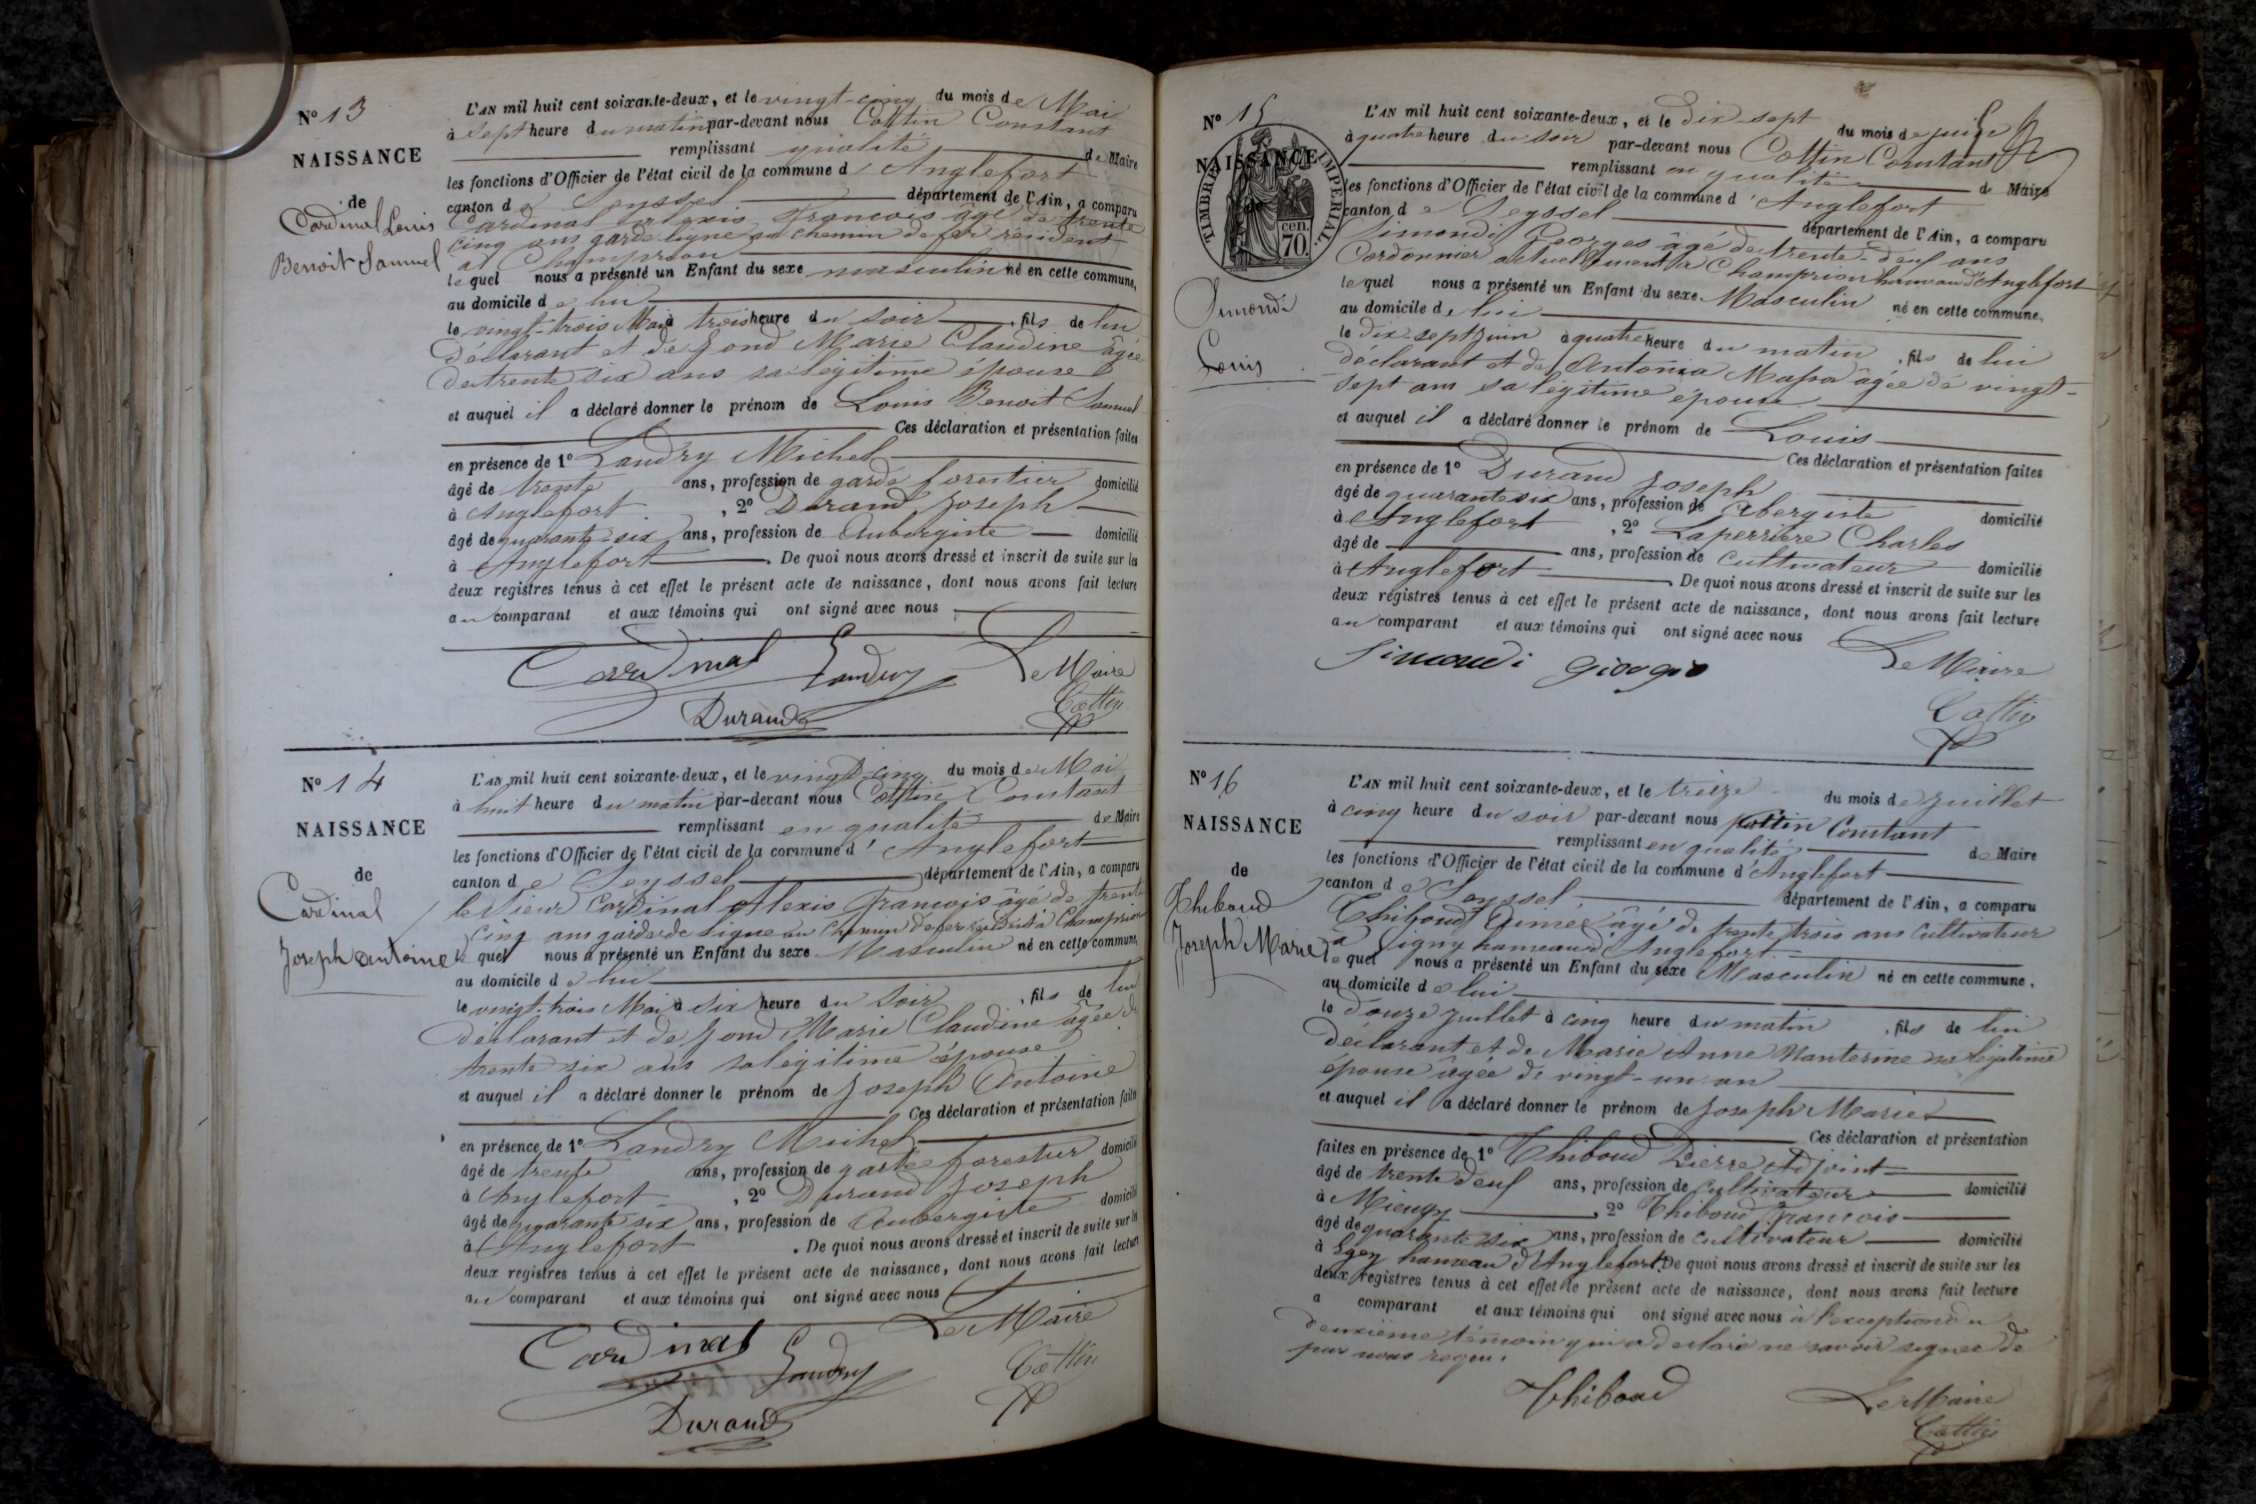 N° 13
NAISSANCE
de
Cardinal Louis
Benoit Samuel
L'AN mil huit cent soixante-deux, et le vingt-cinq du mois de Mai
à sept heure du matin par-devant nous Cottin Constant
remplissant qualité de Maire
les fonctions d'Officier de l'état civil de la commune d'Anglefort
canton de Seyssel département de l'Ain, a comparu
Cardinal Alexis François âgé de trente
cinq ans garde ligne au chemin de fer résident
à Champrion
lequel nous a présenté un Enfant du sexe masculin né en cette commune,
au domicile de lui
le vingt-trois Mai à trois heure du soir, fils de lui
déclarant et de Jond Marie Claudine âgée
de trente six ans sa légitime épouse
et auquel il a déclaré donner le prénom de Louis Benoit Samuel
Ces déclaration et présentation faites
en présence de 1° Landry Michel
âgé de trente ans, profession de garde forestier domicilié
à Anglefort, 2° Durand Joseph
âgé de quarante-six ans, profession de Aubergiste domicilié
à Anglefort. De quoi nous avons dressé et inscrit de suite sur les
deux registres tenus à cet effet le présent acte de naissance, dont nous avons fait lecture
au comparant et aux témoins qui ont signé avec nous.
Cardinal Landry Le Maire
Durand Cottin
N° 14
NAISSANCE
de
Cardinal
Joseph Antoine
L'AN mil huit cent soixante-deux, et le vingt-cinq du mois de Mai
à huit heure du matin par-devant nous Cottin Constant
remplissant en qualité de Maire
les fonctions d'Officier de l'état civil de la commune d'Anglefort
canton de Seyssel département de l'Ain, a comparu
le sieur Cardinal Alexis François âgé de trente
cinq ans garde de ligne au chemin de fer résident à Champrion
lequel nous a présenté un Enfant du sexe Masculin né en cette commune,
au domicile de lui
le vingt-trois Mai à six heure du soir, fils de lui
déclarant et de Jond Marie Claudine âgée de
trente six ans sa légitime épouse
et auquel il a déclaré donner le prénom de Joseph Antoine
Ces déclaration et présentation faites
en présence de 1° Landry Michel
âgé de trente ans, profession de garde forestier domicilié
à Anglefort, 2° Durand Joseph
âgé de quarante six ans, profession de Aubergiste domicilié
à Anglefort. De quoi nous avons dressé et inscrit de suite sur les
deux registres tenus à cet effet le présent acte de naissance, dont nous avons fait lecture
au comparant et aux témoins qui ont signé avec nous
Cardinal Landry Le Maire
Durand Cottin
N° 15
NAISSANCE
TIMBRE IMPERIAL.
cen.
70.
Simondi
Louis
L'AN mil huit cent soixante-deux, et le dix sept du mois de juin
à quatre heure du soir par-devant nous Cottin Constant
remplissant en qualité de Maire
les fonctions d'Officier de l'état civil de la commune d'Anglefort
canton de Seyssel département de l'Ain, a comparu
Simondi Georges âgé de trente-deuf ans
Cordonnier actuellement à Champrion hameau d'Anglefort
lequel nous a présenté un Enfant du sexe Masculin né en cette commune,
au domicile de lui
le dix-sept juin à quatre heure du matin, fils de lui
déclarant et de Antonia Massa âgée de vingt-
sept ans sa légitime épouse
et auquel il a déclaré donner le prénom de Louis
Ces déclaration et présentation faites
en présence de 1° Durand Joseph
âgé de quarante six ans, profession de Abergiste domicilié
à Anglefort, 2° Laperrière Charles
âgé de ans, profession de cultivateur domicilié
à Anglefort. De quoi nous avons dressé et inscrit de suite sur les
deux registres tenus à cet effet le présent acte de naissance, dont nous avons fait lecture
au comparant et aux témoins qui ont signé avec nous
Simondi Giorgio Le Maire
Cottin
N° 16
NAISSANCE
de
Thiboud
Joseph Marie
L'AN mil huit cent soixante-deux, et le treize du mois de juillet
à cinq heure du soir par-devant nous Cottin Constant
remplissant en qualité de Maire
les fonctions d'Officier de l'état civil de la commune d'Anglefort
canton de Seyssel département de l'Ain, a comparu
Thiboud Aimé âgé de trente trois ans cultivateur
à hameau d'Anglefort
lequel nous a présenté un Enfant du sexe Masculin né en cette commune,
au domicile de lui
le douze juillet à cinq heure du matin, fils de lui
déclarant et de Marie Anne Nanterme sa légitime
épouse âgée de vingt-un an
et auquel il a déclaré donner le prénom de Joseph Marie
Ces déclaration et présentation
faites en présence de 1° Thiboud Pierre Adjoint
âgé de trente deuf ans, profession de cultivateur domicilié
à Mieugy, 2° Thiboud François
âgé de quarante six ans, profession de cultivateur domicilié
à hameau d'Anglefort. De quoi nous avons dressé et inscrit de suite sur les
deux registres tenus à cet effet le présent acte de naissance, dont nous avons fait lecture
a comparant et aux témoins qui ont signé avec nous à l'exception du
deuxième témoin qui a déclaré ne savoir signer de
par nous requi.
Thiboud Le Maire
Cottin